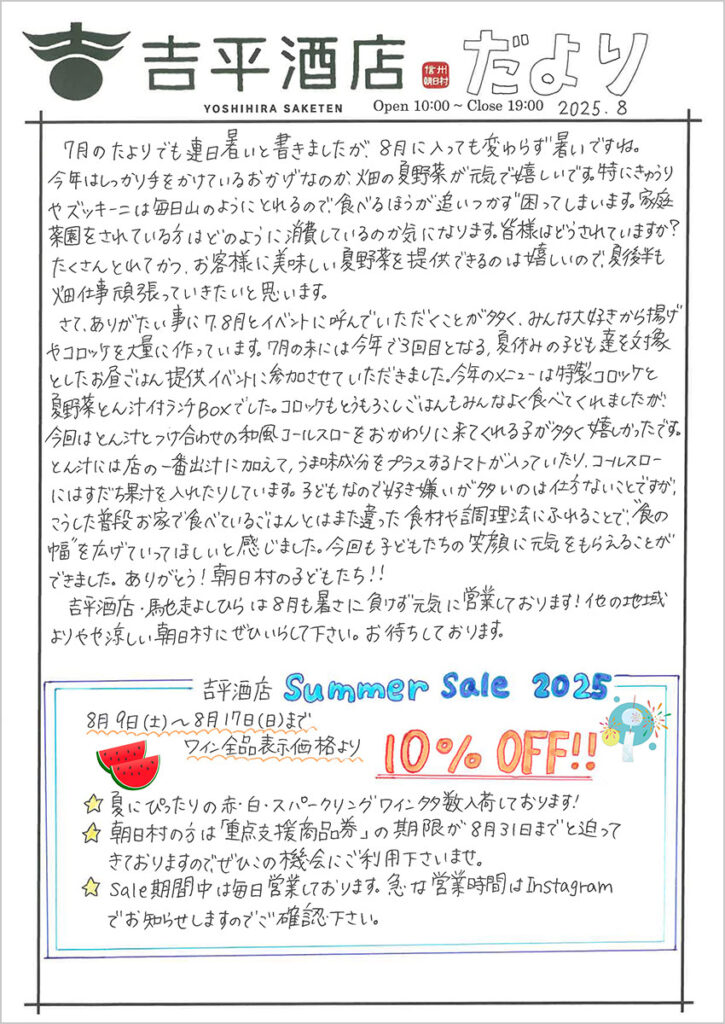 吉
吉平酒店 信州朝日村 だより
YOSHIHIRA SAKETEN Open 10:00 ~ Close 19:00 2025.8
7月のたよりでも連日暑いと書きましたが、8月に入っても変わらず暑いですね。
今年はしっかり手をかけているおかげなのか、畑の夏野菜が元気で嬉しいです。特にきゅうり
やズッキーニは毎日山のようにとれるので食べるほうが追いつかず困ってしまいます。家庭
菜園をされている方はどのように消費しているのか気になります。皆様はどうされていますか?
たくさんとれてかつ、お客様に美味しい夏野菜を提供できるのは嬉しいので、夏後半も
畑仕事頑張っていきたいと思います。
さて、ありがたい事に7、8月とイベントに呼んでいただくことが多く、みんな大好きから揚げ
やコロッケを大量に作っています。7月の末には今年で3回目となる、夏休みの子ども達を対象
としたお昼ごはん提供イベントに参加させていただきました。今年のメニューは特製コロッケと
夏野菜とん汁付ランチBOXでした。コロッケもとうもろこしごはんもみんなよく食べてくれましたが、
今回はとん汁とつけ合わせの和風コールスローをおかわりに来てくれる子が多く嬉しかったです。
とん汁には店の一番出汁に加えて、うま味成分をプラスするトマトが入っていたり、コールスロー
にはすだち果汁を入れたりしています。子どもなので好き嫌いが多いのは仕方ないことですが、
こうした普段お家で食べているごはんとはまた違った食材や調理法にふれることで、"食の
幅"を広げていってほしいと感じました。今回も子どもたちの笑顔に元気をもらえることが
できました。ありがとう!朝日村の子どもたち!!
吉平酒店・馳走よしひらは8月も暑さに負けず元気に営業しております!他の地域
よりやや涼しい朝日村にぜひいらして下さい。お待ちしております。
吉平酒店 Summer Sale 2025
8月9日(土)〜8月17日(日)まで
ワイン全品表示価格より 10% OFF!!
☆ 夏にぴったりの赤・白・スパークリングワイン多数入荷しております!
☆ 朝日村の方は「重点支援商品券」の期限が8月31日までと迫って
きておりますのでぜひこの機会にご利用下さいませ。
☆ Sale期間中は毎日営業しております。急な営業時間はInstagram
でお知らせしますのでご確認下さい。